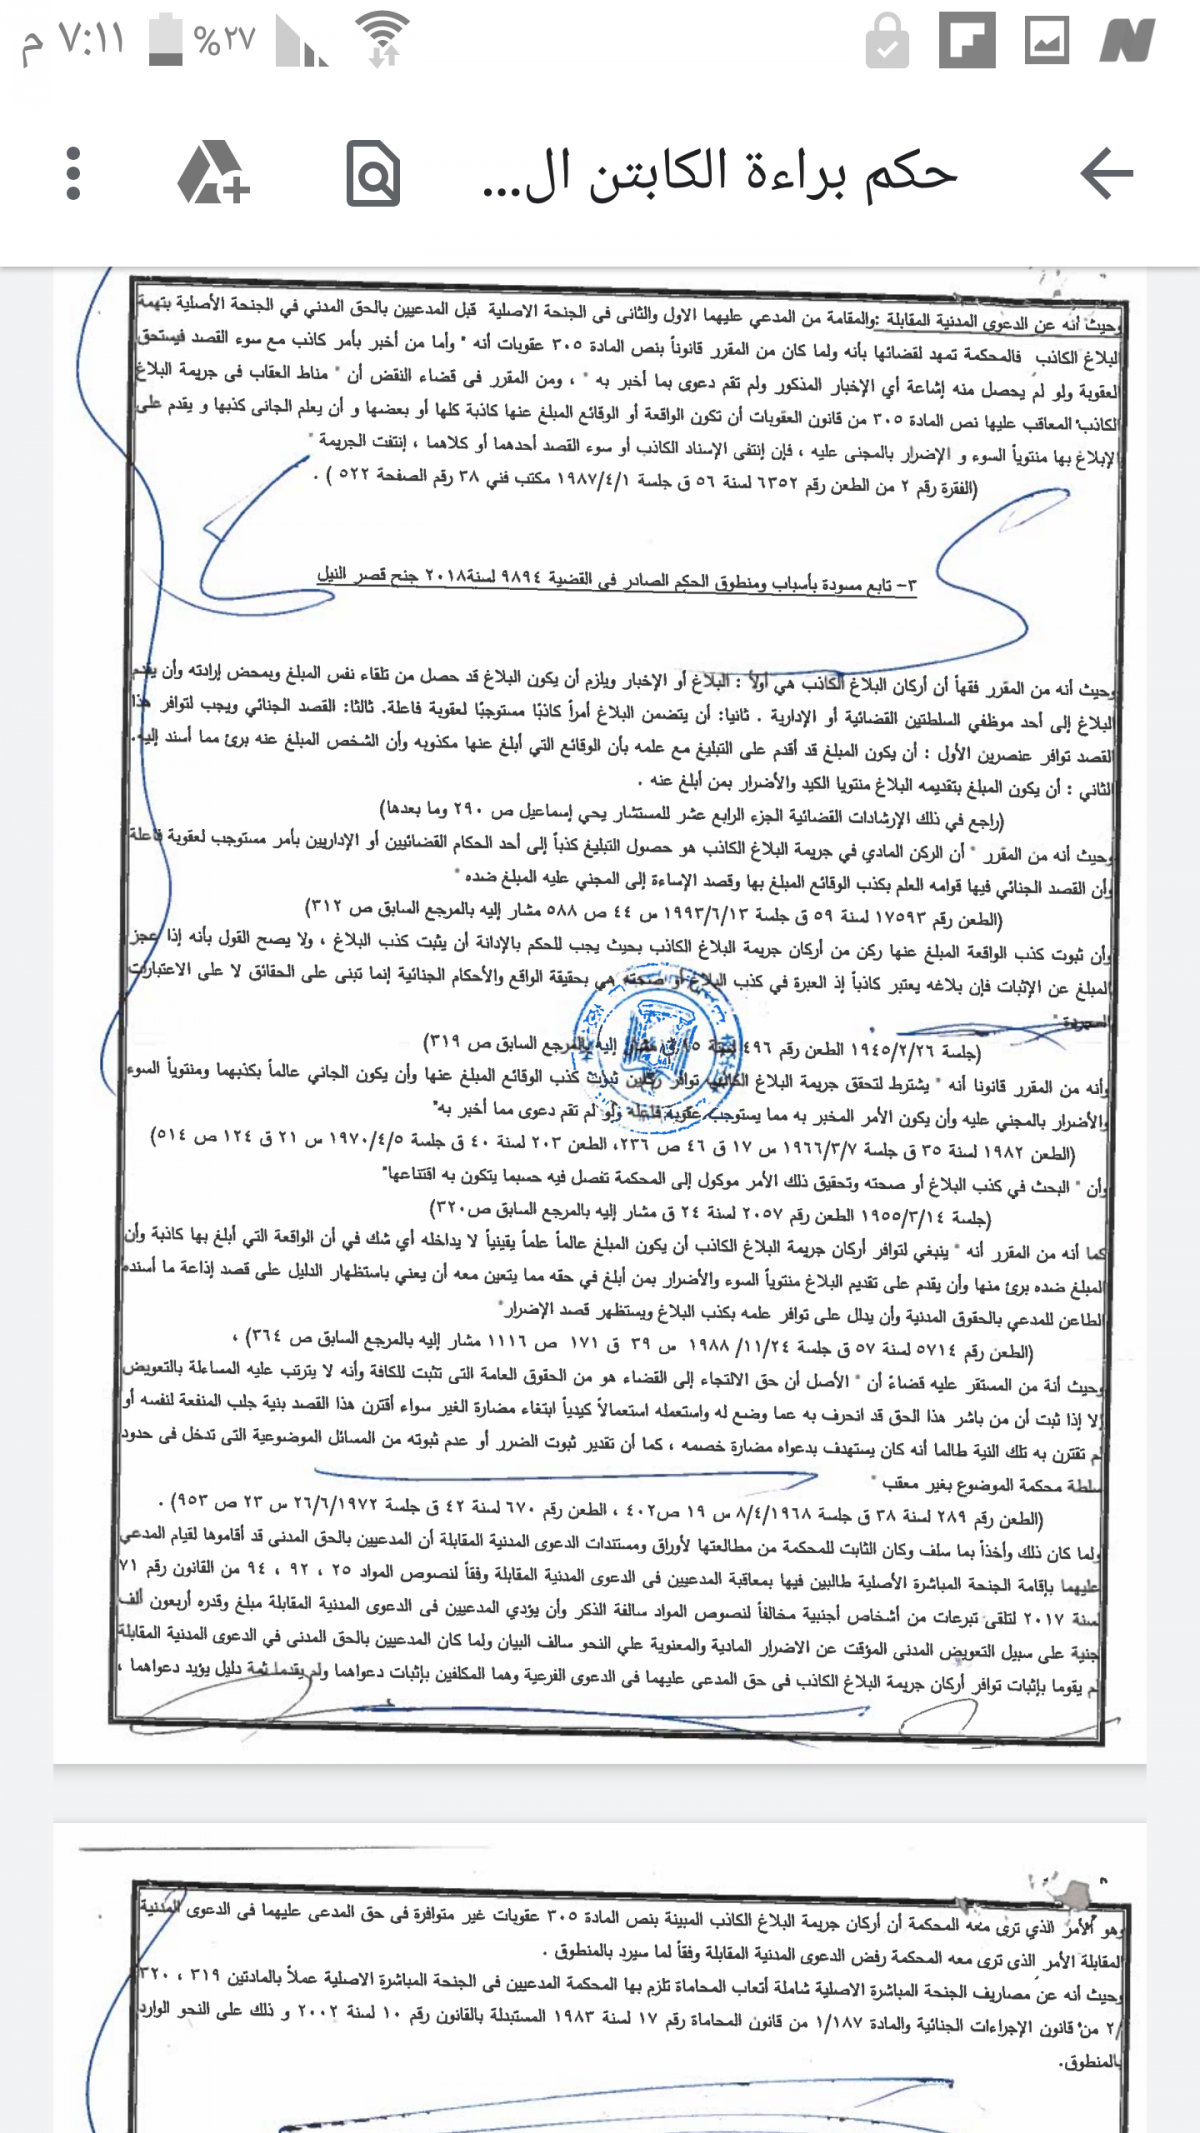 ٧:١١ م
٢٧%
حكم براءة الكابتن ال...
وحيث أنه عن الدعوى المدنية المقابلة :والمقامة من المدعي عليهما الاول والثانى فى الجنحة الاصلية قبل المدعيين بالحق المدني في الجنحة الأصلية بتهمة
البلاغ الكاذب فالمحكمة تمهد لقضائها بأنه ولما كان من المقرر قانوناً بنص المادة ٣٠٥ عقوبات أنه " وأما من أخبر بأمر كاذب مع سوء القصد فيستحق
العقوبة ولو لم يحصل منه إشاعة أي الإخبار المذكور ولم تقم دعوى بما أخبر به " ، ومن المقرر فى قضاء النقض أن " مناط العقاب فى جريمة البلاغ
الكاذب المعاقب عليها نص المادة ٣٠٥ من قانون العقوبات أن تكون الواقعة أو الوقائع المبلغ عنها كاذبة كلها أو بعضها و أن يعلم الجانى كذبها و يقدم على
الإبلاغ بها منتوياً السوء و الإضرار بالمجنى عليه ، فإن إنتفى الإسناد الكاذب أو سوء القصد أحدهما أو كلاهما ، إنتفت الجريمة "
(الفقرة رقم ٢ من الطعن رقم ٦٣٥٢ لسنة ٥٦ ق جلسة ١٩٨٧/٤/١ مكتب فني ٣٨ رقم الصفحة ٥٢٢ ) .
٣- تابع مسودة بأسباب ومنطوق الحكم الصادر في القضية ٩٨٩٤ لسنة٢٠١٨ جنح قصر النيل
وحيث أنه من المقرر فقهاً أن أركان البلاغ الكاذب هي أولاً : البلاغ أو الإخبار ويلزم أن يكون البلاغ قد حصل من تلقاء نفس المبلغ وبمحض إرادته وأن يقدم
البلاغ إلى أحد موظفي السلطتين القضائية أو الإدارية . ثانيا: أن يتضمن البلاغ أمراً كاذبًا مستوجبًا لعقوبة فاعلة. ثالثا: القصد الجنائي ويجب لتوافر هذا
القصد توافر عنصرين الأول : أن يكون المبلغ قد أقدم على التبليغ مع علمه بأن الوقائع التي أبلغ عنها مكذوبه وأن الشخص المبلغ عنه برئ مما أسند إليه.
الثاني : أن يكون المبلغ بتقديمه البلاغ منتويا الكيد والأضرار بمن أبلغ عنه .
(راجع في ذلك الإرشادات القضائية الجزء الرابع عشر للمستشار يحي إسماعيل ص ٢٩٠ وما بعدها)
وحيث أنه من المقرر " أن الركن المادي في جريمة البلاغ الكاذب هو حصول التبليغ كذباً إلى أحد الحكام القضائيين أو الإداريين بأمر مستوجب لعقوبة فاعلة
وأن القصد الجنائي فيها قوامه العلم بكذب الوقائع المبلغ بها وقصد الإساءة إلى المجني عليه المبلغ ضده "
(الطعن رقم ١٧٥٩٣ لسنة ٥٩ ق جلسة ١٩٩٣/٦/١٣ س ٤٤ ص ٥٨٨ مشار إليه بالمرجع السابق ص ٣١٢)
وأن ثبوت كذب الواقعة المبلغ عنها ركن من أركان جريمة البلاغ الكاذب بحيث يجب للحكم بالإدانة أن يثبت كذب البلاغ ، ولا يصح القول بأنه إذا عجز
المبلغ عن الإثبات فإن بلاغه يعتبر كاذباً إذ العبرة في كذب البلاغ أو صحته هي بحقيقة الواقع والأحكام الجنائية إنما تبنى على الحقائق لا على الاعتبارات
المجردة "
(جلسة ١٩٤٥/٢/٢٦ الطعن رقم ٤٩٦ سنة ١٥ ق مشار إليه بالمرجع السابق ص ٣١٩)
وأنه من المقرر قانونا أنه " يشترط لتحقق جريمة البلاغ الكاذب توافر ركنين ثبوت كذب الوقائع المبلغ عنها وأن يكون الجاني عالماً بكذبهما ومنتوياً السوء
والأضرار بالمجني عليه وأن يكون الأمر المخبر به مما يستوجب عقوبة فاعله ولو لم تقم دعوى مما أخبر به"
(الطعن ١٩٨٢ لسنة ٣٥ ق جلسة ١٩٦٦/٣/٧ س ١٧ ق ٤٦ ص ٢٣٦، الطعن ٢٠٣ لسنة ٤٠ ق جلسة ١٩٧٠/٤/٥ س ٢١ ق ١٢٤ ص ٥١٤)
وأن " البحث في كذب البلاغ أو صحته وتحقيق ذلك الأمر موكول إلى المحكمة تفصل فيه حسبما يتكون به اقتناعها"
(جلسة ١٩٥٥/٣/١٤ الطعن رقم ٢٠٥٧ لسنة ٢٤ ق مشار إليه بالمرجع السابق ص٣٢٠)
كما أنه من المقرر أنه " ينبغي لتوافر أركان جريمة البلاغ الكاذب أن يكون المبلغ عالماً علماً يقينياً لا يداخله أي شك في أن الواقعة التي أبلغ بها كاذبة وأن
المبلغ ضده برئ منها وأن يقدم على تقديم البلاغ منتوياً السوء والأضرار بمن أبلغ في حقه مما يتعين معه أن يعني باستظهار الدليل على قصد إذاعة ما أسنده
الطاعن للمدعي بالحقوق المدنية وأن يدلل على توافر علمه بكذب البلاغ ويستظهر قصد الإضرار"
(الطعن رقم ٥٧١٤ لسنة ٥٧ ق جلسة ١٩٨٨ /١١/٢٤ س ٣٩ ق ١٧١ ص ١١١٦ مشار إليه بالمرجع السابق ص ٣٦٤) ،
وحيث أنة من المستقر عليه قضاءً أن " الأصل أن حق الالتجاء إلى القضاء هو من الحقوق العامة التى تثبت للكافة وأنه لا يترتب عليه المساءلة بالتعويض
إلا إذا ثبت أن من باشر هذا الحق قد انحرف به عما وضع له واستعمله استعمالاً كيدياً ابتغاء مضارة الغير سواء أقترن هذا القصد بنية جلب المنفعة لنفسه أو
لم تقترن به تلك النية طالما أنه كان يستهدف بدعواه مضارة خصمه ، كما أن تقدير ثبوت الضرر أو عدم ثبوته من المسائل الموضوعية التى تدخل فى حدود
سلطة محكمة الموضوع بغير معقب "
(الطعن رقم ٢٨٩ لسنة ٣٨ ق جلسة ٨/٤/١٩٦٨ س ١٩ ص٤٠٢ ، الطعن رقم ٦٧٠ لسنة ٤٢ ق جلسة ٢٦/٦/١٩٧٢ س ٢٣ ص ٩٥٣) .
ولما كان ذلك وأخذاً بما سلف وكان الثابت للمحكمة من مطالعتها لأوراق ومستندات الدعوى المدنية المقابلة أن المدعيين بالحق المدنى قد أقاموها لقيام المدعي
عليهما بإقامة الجنحة المباشرة الأصلية طالبين فيها بمعاقبة المدعيين فى الدعوى المدنية المقابلة وفقاً لنصوص المواد ٢٥ ، ٩٢ ، ٩٤ من القانون رقم ٧١
لسنة ٢٠١٧ لتلقى تبرعات من أشخاص أجنبية مخالفاً لنصوص المواد سالفة الذكر وأن يؤدي المدعيين فى الدعوى المدنية المقابلة مبلغ وقدره أربعون ألف
جنية على سبيل التعويض المدنى المؤقت عن الاضرار المادية والمعنوية علي النحو سالف البيان ولما كان المدعيين بالحق المدنى في الدعوى المدنية المقابلة
لم يقوما بإثبات توافر أركان جريمة البلاغ الكاذب فى حق المدعى عليهما في الدعوى الفرعية وهما المكلفين بإثبات دعواهما ولم يقدما ثمة دليل يؤيد دعواهما ،
وهو الأمر الذي ترى معه المحكمة أن أركان جريمة البلاغ الكاذب المبينة بنص المادة ٣٠٥ عقوبات غير متوافرة فى حق المدعى عليهما فى الدعوى المدنية
المقابلة الأمر الذى ترى معه المحكمة رفض الدعوى المدنية المقابلة وفقاً لما سيرد بالمنطوق .
وحيث أنه عن مصاريف الجنحة المباشرة الاصلية شاملة أتعاب المحاماة تلزم بها المحكمة المدعيين فى الجنحة المباشرة الاصلية عملاً بالمادتين ٣١٩ ، ٣٢٠
/٢ من قانون الإجراءات الجنائية والمادة ١/١٨٧ من قانون المحاماة رقم ١٧ لسنة ١٩٨٣ المستبدلة بالقانون رقم ١٠ لسنة ٢٠٠٢ و ذلك على النحو الوارد
بالمنطوق.